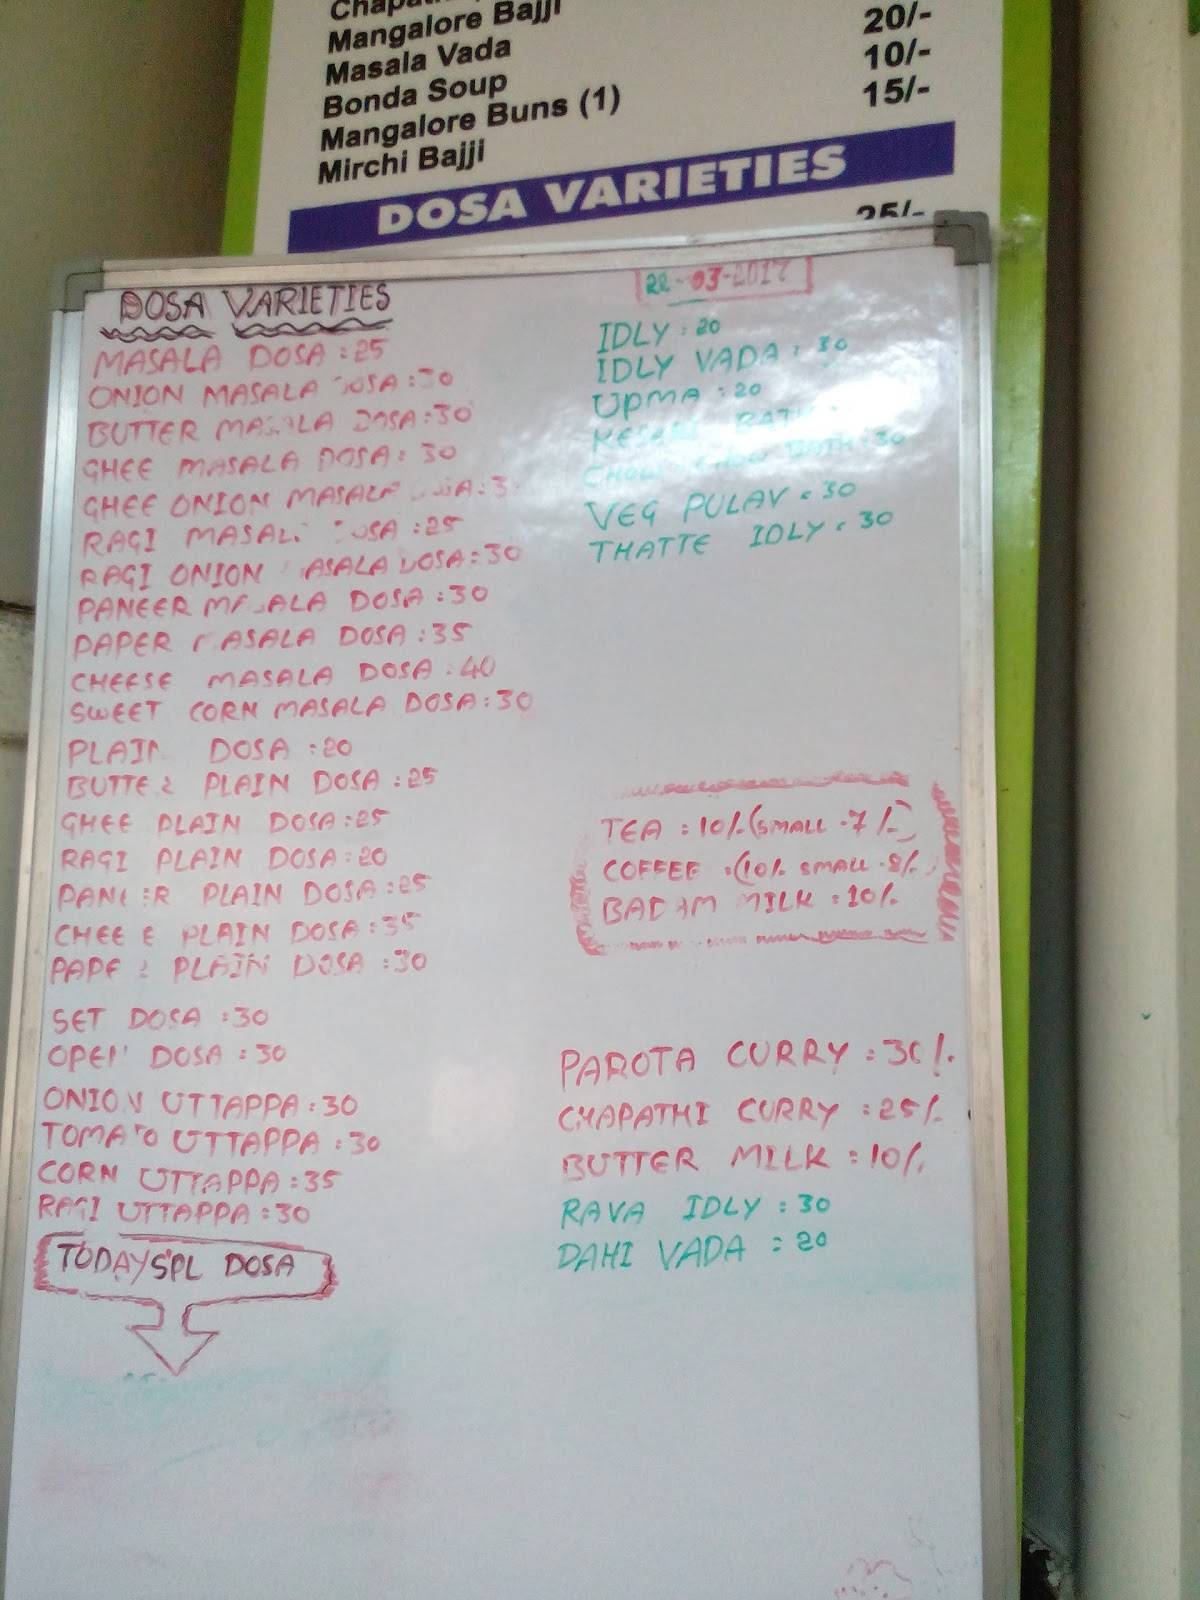 Mangalore Bajji
Masala Vada 20/-
Bonda Soup 10/-
Mangalore Buns (1) 15/-
Mirchi Bajji
DOSA VARIETIES
25/-
DOSA VARIETIES
MASALA DOSA : 25
ONION MASALA DOSA : 30
BUTTER MASALA DOSA : 30
GHEE MASALA DOSA : 30
GHEE ONION MASALA DOSA :
RAGI MASALA DOSA : 25
RAGI ONION MASALA DOSA : 30
PANEER MASALA DOSA : 30
PAPER MASALA DOSA : 35
CHEESE MASALA DOSA : 40
SWEET CORN MASALA DOSA : 30
PLAIN DOSA : 20
BUTTER PLAIN DOSA : 25
GHEE PLAIN DOSA : 25
RAGI PLAIN DOSA : 20
PANEER PLAIN DOSA : 25
CHEESE PLAIN DOSA : 35
PAPER PLAIN DOSA : 30
SET DOSA : 30
OPEN DOSA : 30
ONION UTTAPPA : 30
TOMATO UTTAPPA : 30
CORN UTTAPPA : 35
RAGI UTTAPPA : 30
TODAY SPL DOSA
22-03-2017
IDLY : 20
IDLY VADA : 30
UPMA : 20
KESARI BATH
CHOW CHOW BATH : 30
VEG PULAV : 30
THATTE IDLY : 30
TEA : 10/- (SMALL - 7/-)
COFFEE : (10/- SMALL - 8/-)
BADAM MILK : 10/-
PAROTA CURRY : 30/-
CHAPATHI CURRY : 25/-
BUTTER MILK : 10/-
RAVA IDLY : 30
DAHI VADA : 20